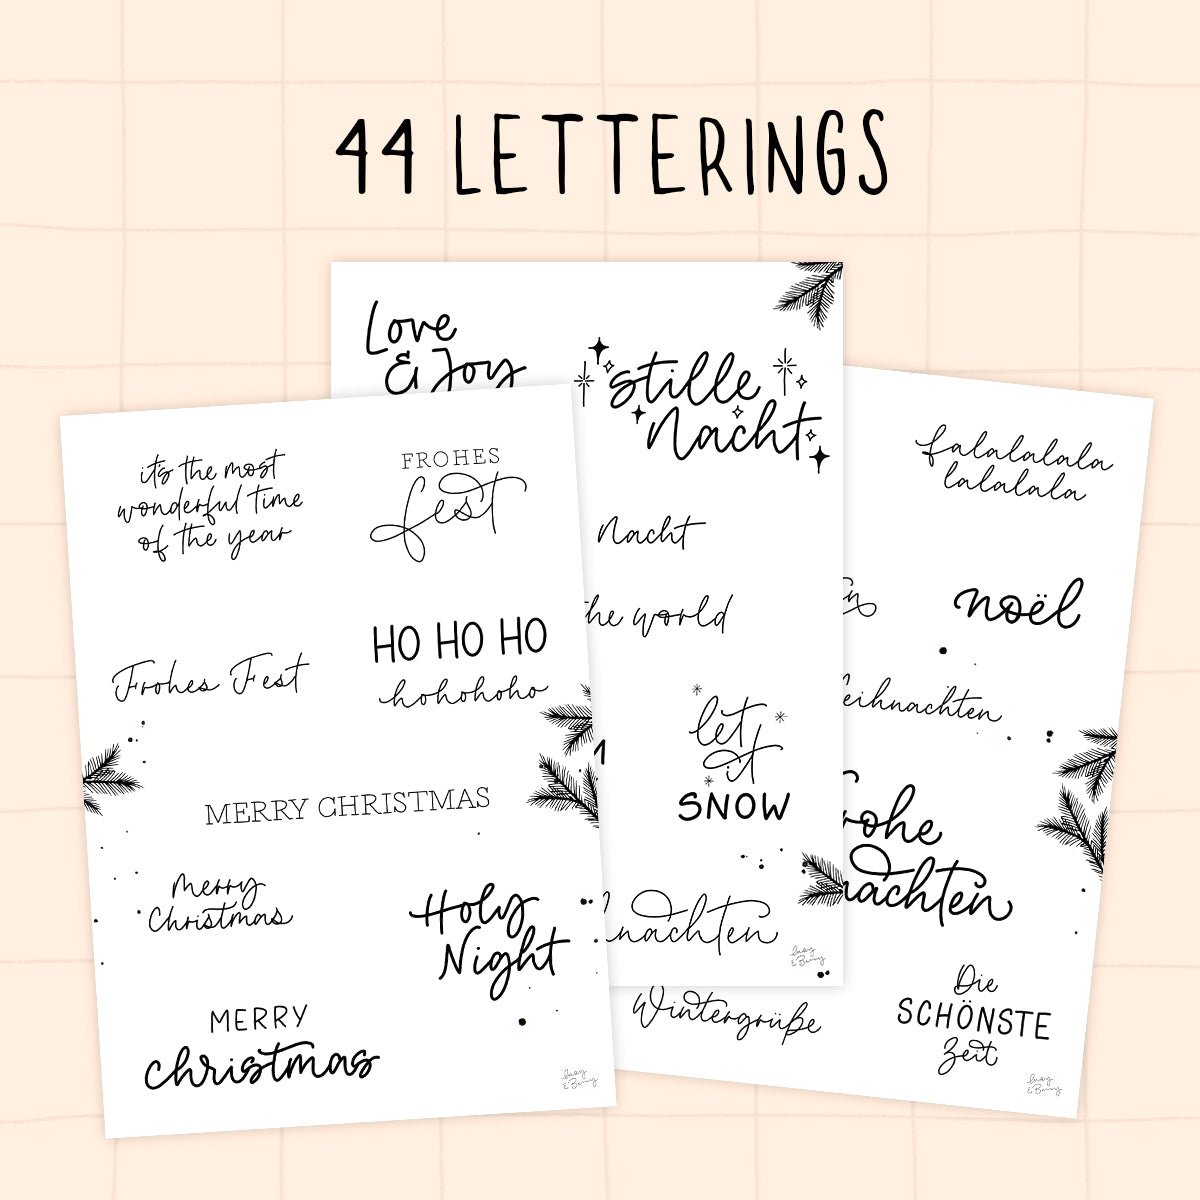 44 LETTERINGS
it's the most
wonderful time
of the year
FROHES
fest
Frohes Fest
HO HO HO
hohohoho
MERRY CHRISTMAS
Merry
Christmas
Holy
Night
MERRY
christmas
Love
& Joy
stille
Nacht
Nacht
the world
let
it
SNOW
nachten
falalalala
lalalala
noël
eihnachten
rohe
nachten
Wintergrüße
Die
SCHÖNSTE
Zeit